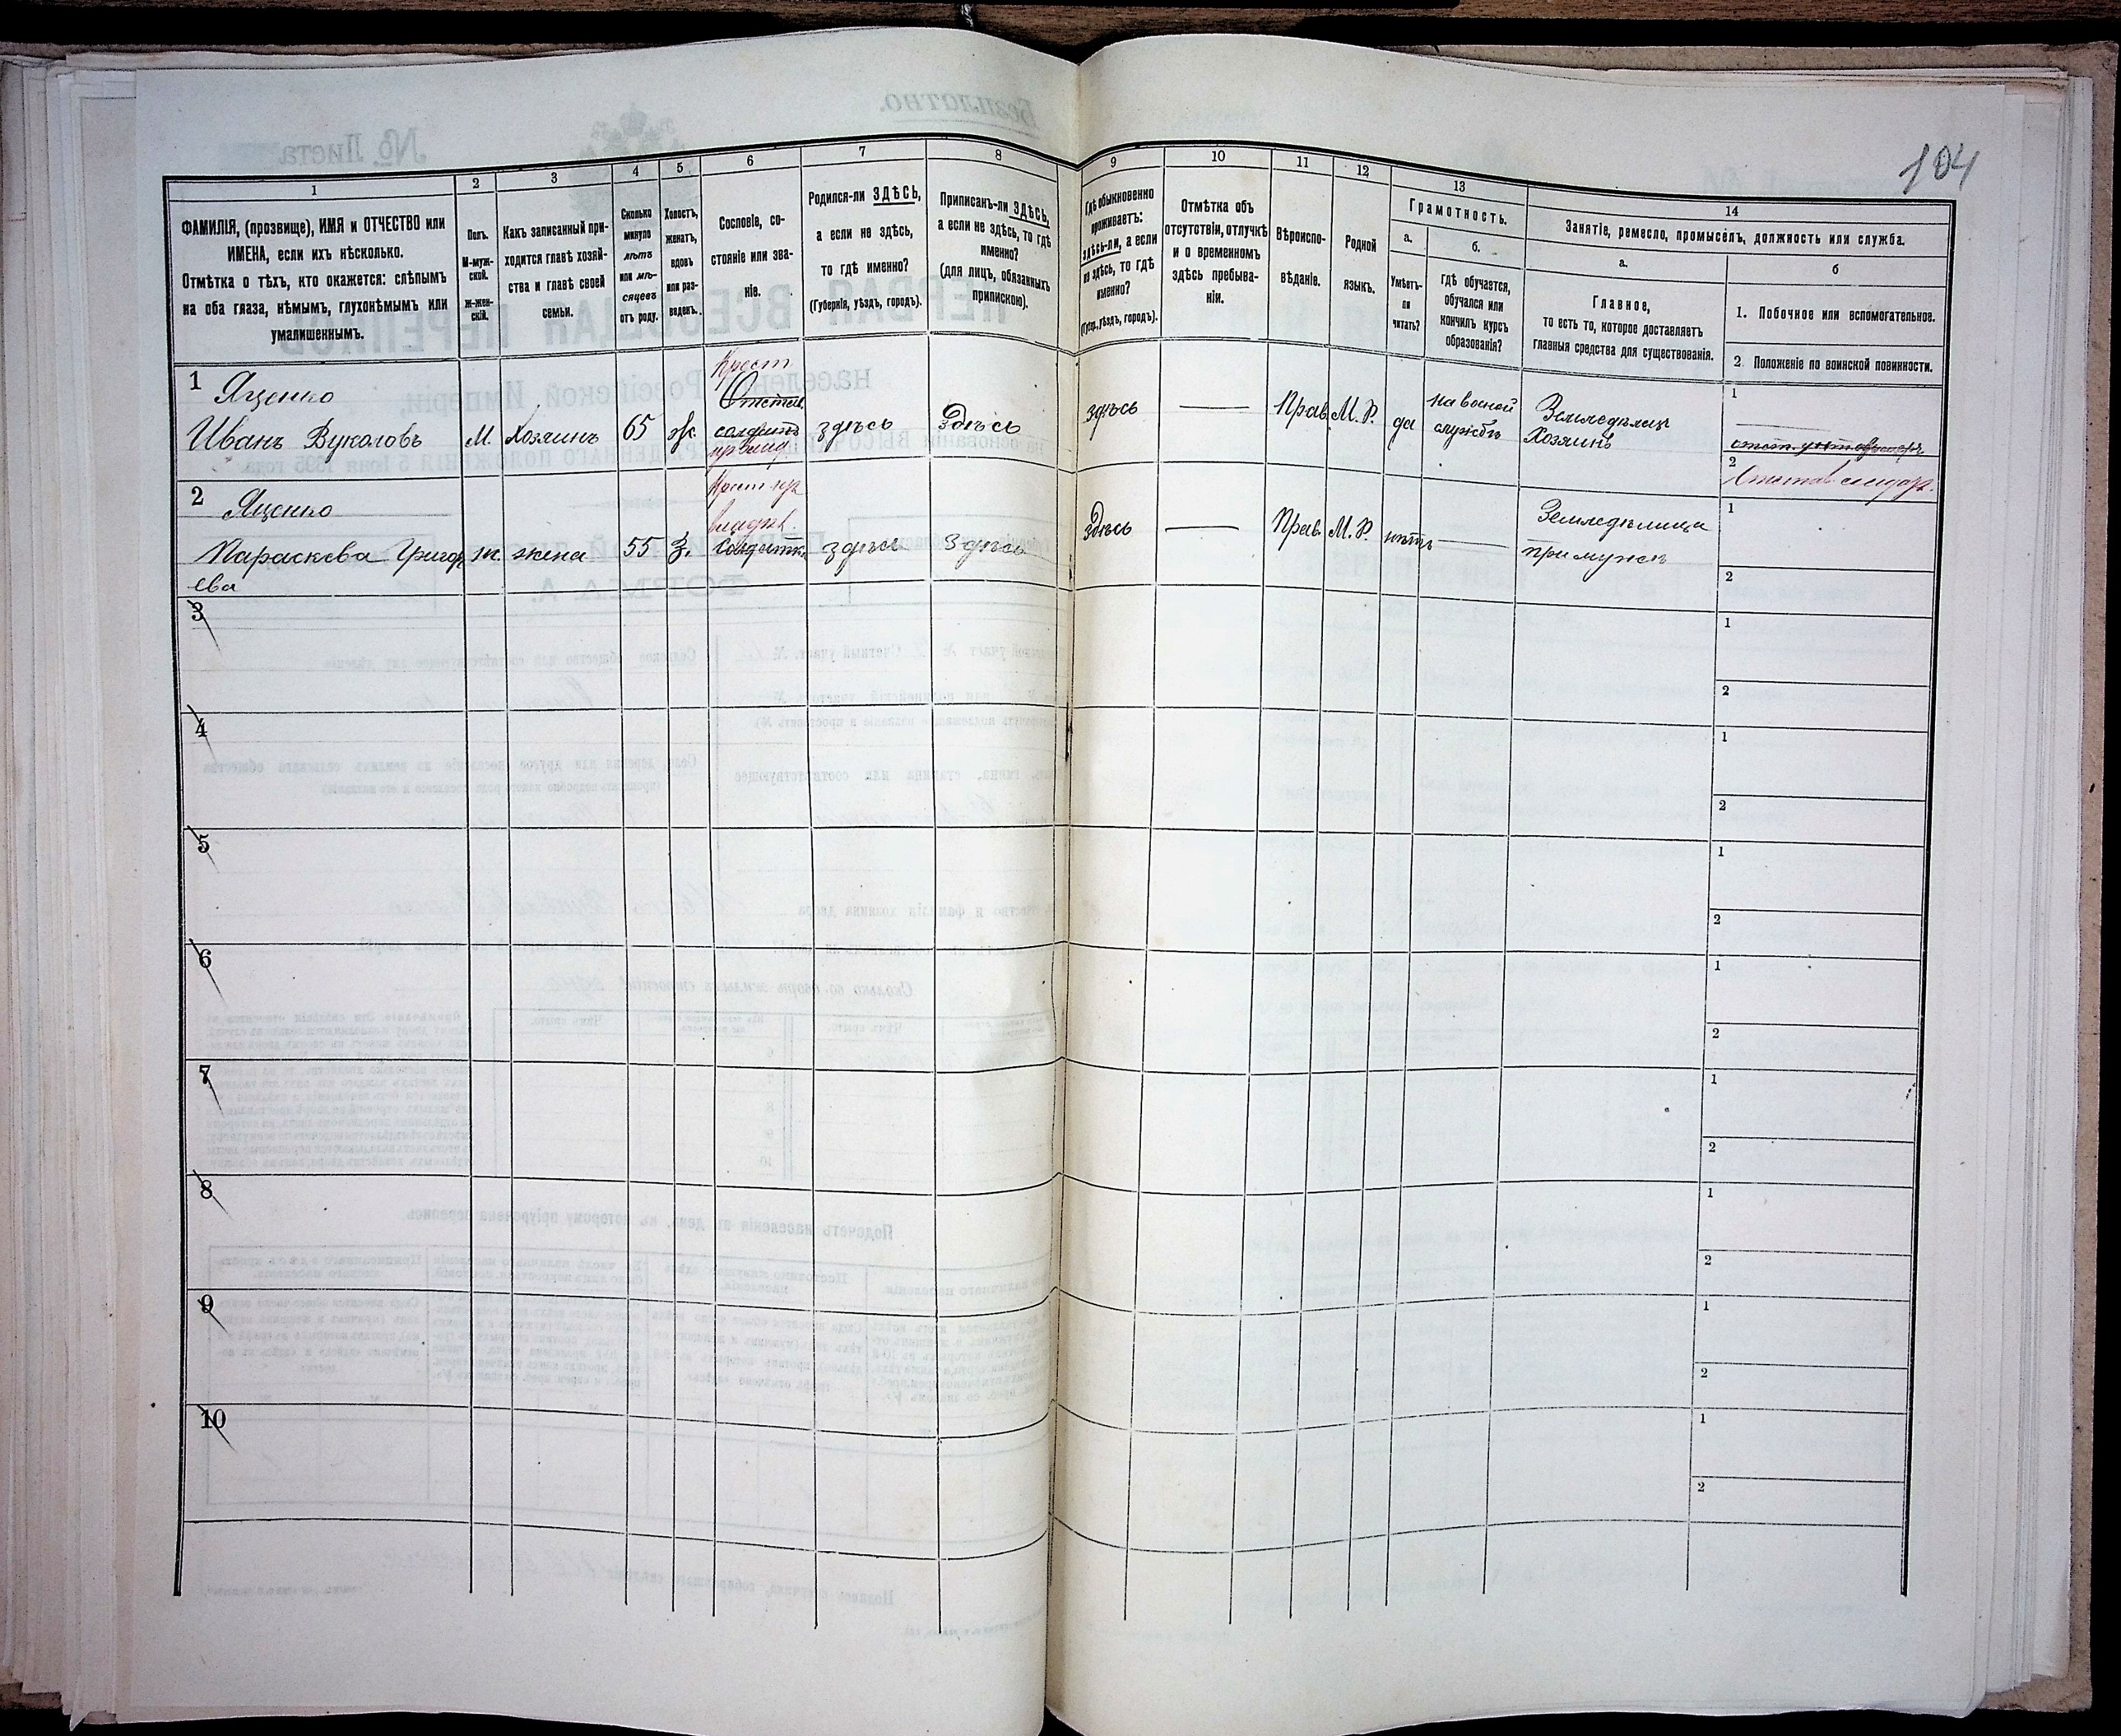 104
1
2
3
4
5
6
7
8
9
10
11
12
13
14
ФАМИЛІЯ, (прозвище), ИМЯ и ОТЧЕСТВО или
ИМЕНА, если ихъ нѣсколько.
Отмѣтка о тѣхъ, кто окажется: слѣпымъ
на оба глаза, нѣмымъ, глухонѣмымъ или
умалишеннымъ.
Полъ.
М-муж-
ской.
ж-жен-
скій.
Какъ записанный при-
ходится главѣ хозяй-
ства и главѣ своей
семьи.
Сколько
минуло
лѣтъ
или мѣ-
сяцевъ
отъ роду.
Холостъ,
женатъ,
вдовъ
или раз-
веденъ.
Сословіе, со-
стояніе или зва-
ніе.
Родился-ли ЗДѢСЬ,
а если не здѣсь,
то гдѣ именно?
(Губернія, уѣздъ, городъ).
Приписанъ-ли ЗДѢСЬ,
а если не здѣсь, то гдѣ
именно?
(для лицъ, обязанныхъ
припискою).
Гдѣ обыкновенно
проживаетъ:
здѣсь-ли, а если
не здѣсь, то гдѣ
именно?
(Губер., уѣздъ, городъ).
Отмѣтка объ
отсутствіи, отлучкѣ
и о временномъ
здѣсь пребыва-
ніи.
Вѣроиспо-
вѣданіе.
Родной
языкъ.
Грамотность.
а.
Умѣетъ-
ли
читать?
б.
гдѣ обучается,
обучался или
кончилъ курсъ
образованія?
Занятіе, ремесло, промыселъ, должность или служба.
а.
Главное,
то есть то, которое доставляетъ
главныя средства для существованія.
б
1. Побочное или вспомогательное.
2. Положеніе по воинской повинности.
1 Яценко
Иванъ Вуколовъ
М.
Хозяинъ
65
ж.
Крест
Отстав.
солдатъ
здѣсь
Здѣсь
здѣсь
Прав
М. Р.
да
на воен­ой
службѣ
Земледѣлецъ
Хозяинъ
1
2
Отстав солдат.
2 Яценко
Параскева Григор
ева
ж.
жена
55
З.
солдатка
здѣсь
Здѣсь
здѣсь
Прав
М. Р.
нѣтъ
Земледѣлица
при мужѣ
1
2
3
1
2
4
1
2
5
1
2
6
1
2
7
1
2
8
1
2
9
1
2
10
1
2